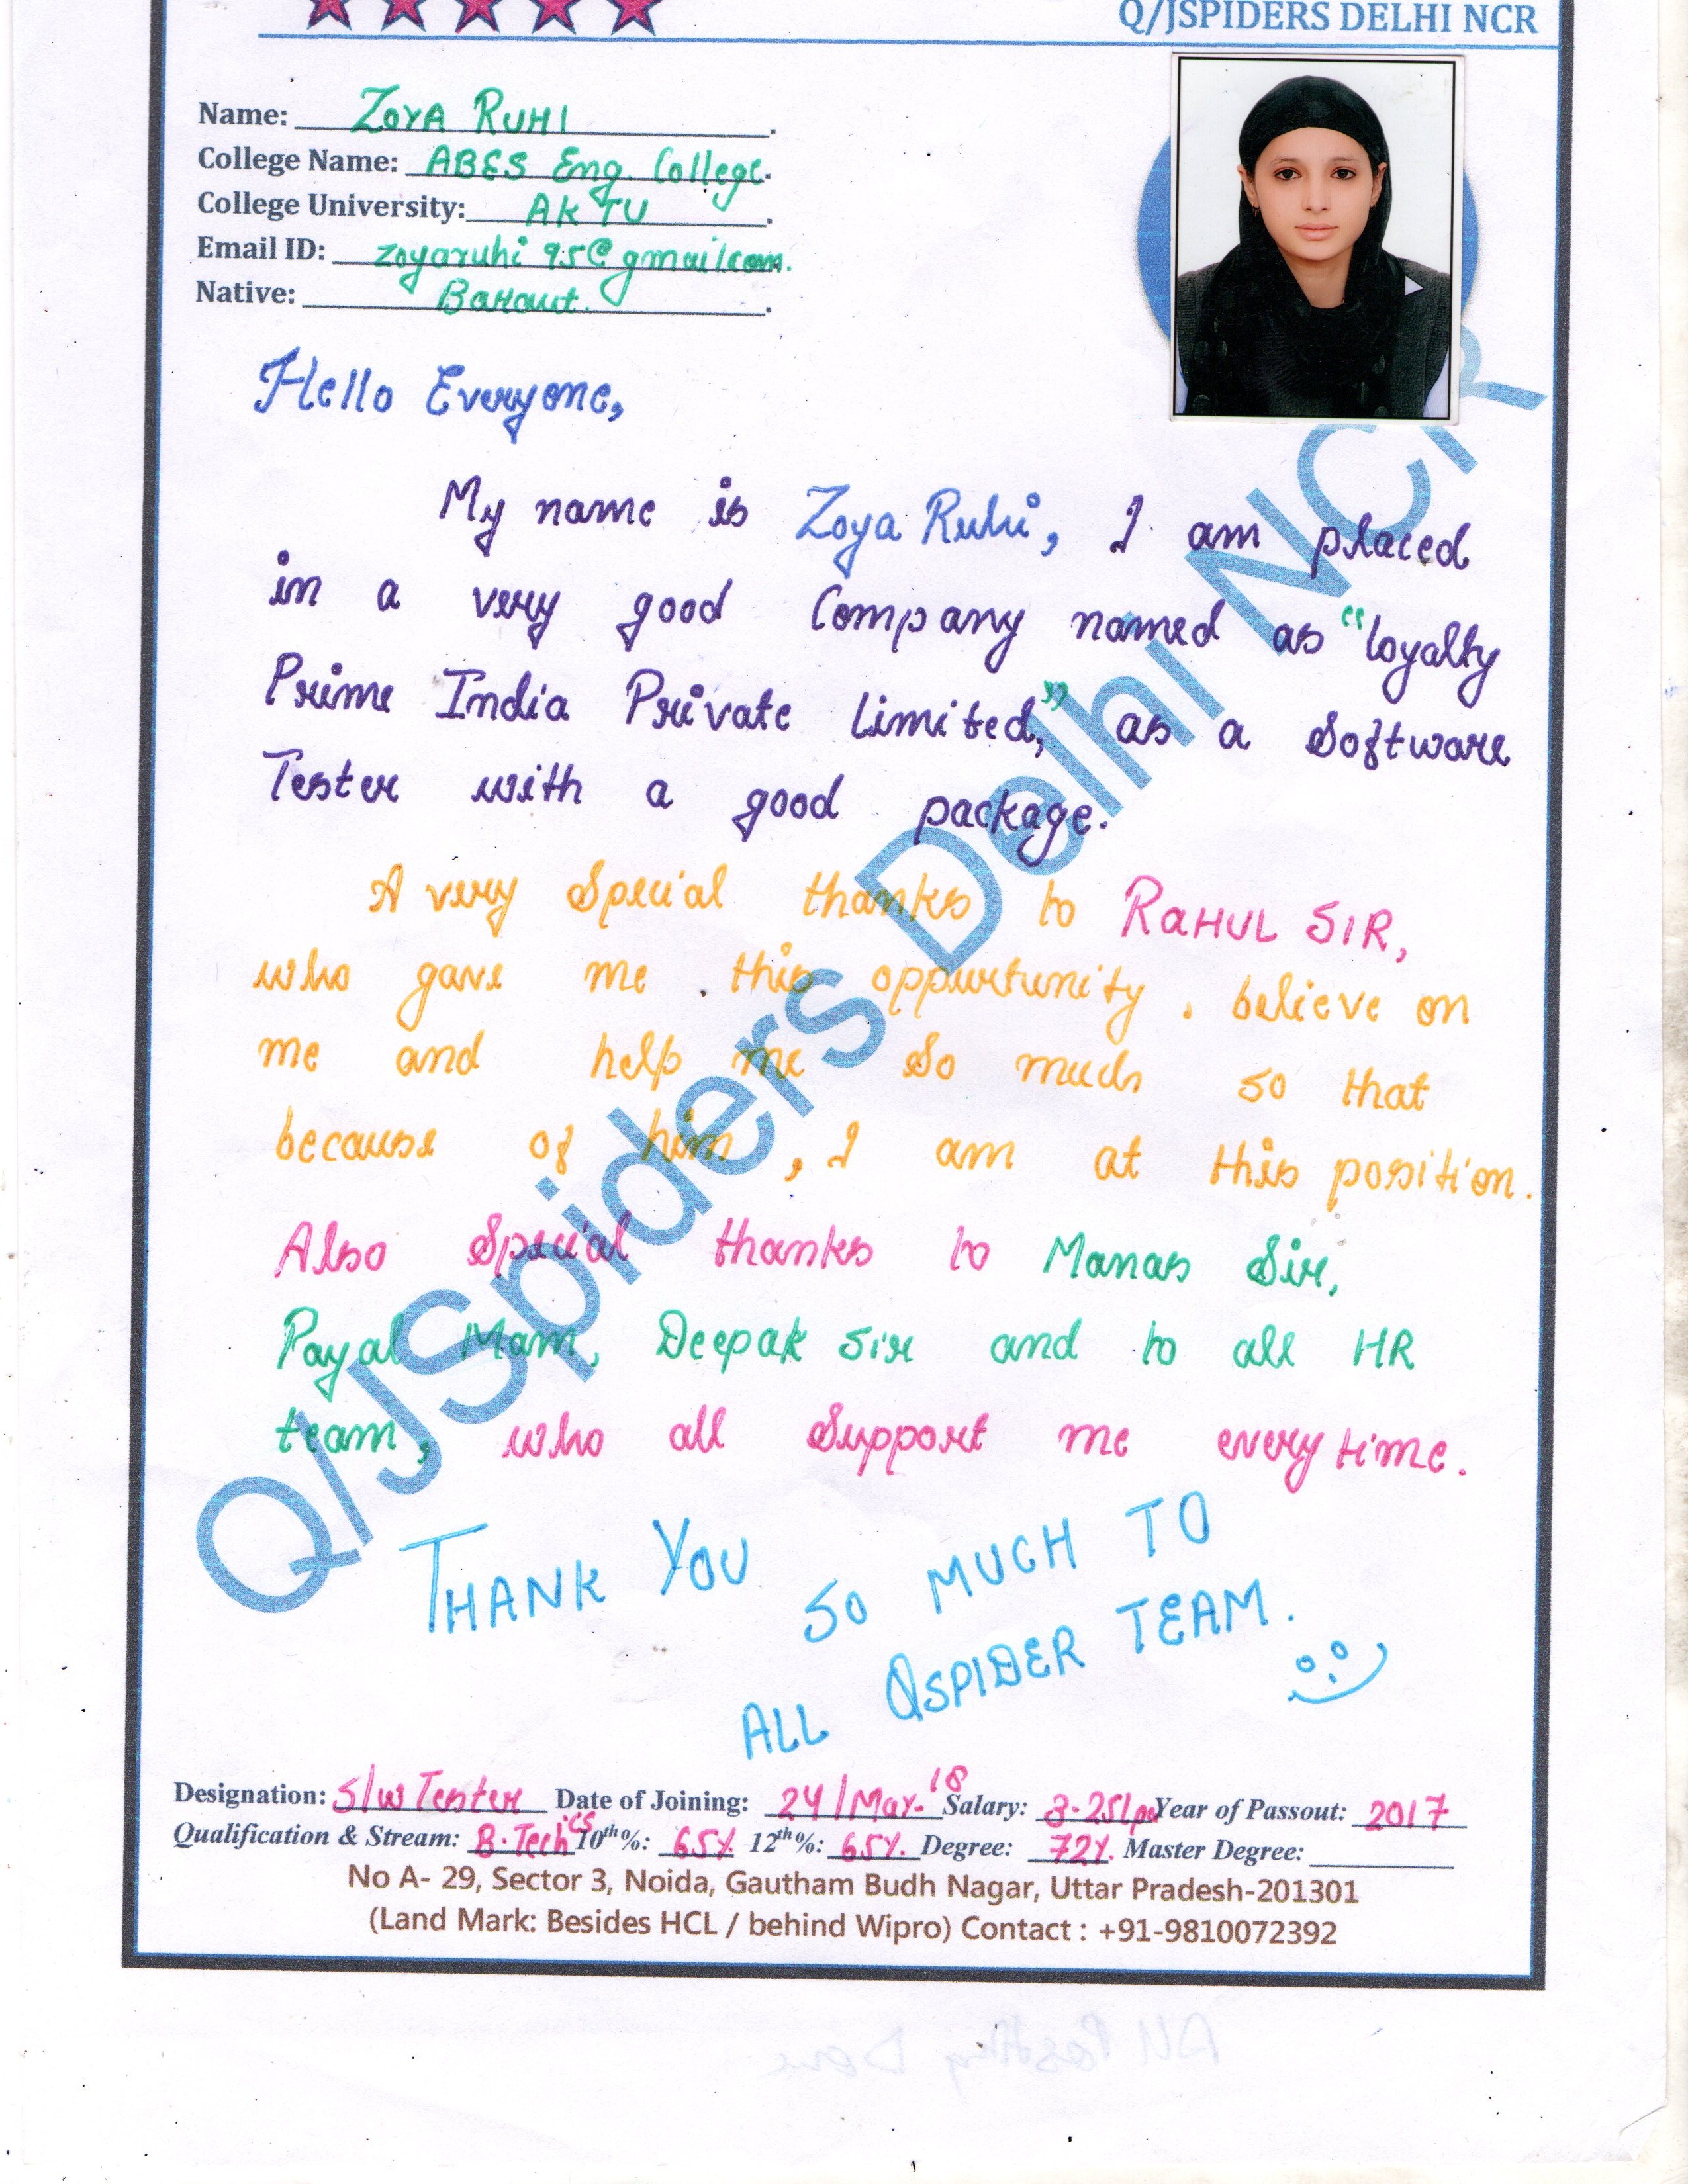 Q/JSPIDERS DELHI NCR
Name: ZOYA RUHI.
College Name: ABES Eng. College.
College University: AKTU.
Email ID: zoyaruhi95@gmail.com.
Native: Baraut.
Hello Everyone,
My name is Zoya Ruhi, I am placed
in a very good Company named as "loyalty
Prime India Private Limited," as a Software
Tester with a good package.
A very Special thanks to RAHUL SIR,
who gave me this oppurtunity, believe on
me and help me so much so that
because of him, I am at this position.
Also Special thanks to Manas Sir,
Payal Mam, Deepak sir and to all HR
team, who all Support me every time.
THANK YOU SO MUCH TO
ALL QSPIDER TEAM.
Designation: S/w Tester Date of Joining: 24/May-'18 Salary: 3.25lpa Year of Passout: 2017
Qualification & Stream: B.Tech 'CS 10th%: 65% 12th%: 65%. Degree: 72%. Master Degree:
No A- 29, Sector 3, Noida, Gautham Budh Nagar, Uttar Pradesh-201301
(Land Mark: Besides HCL / behind Wipro) Contact : +91-9810072392
Q/JSpiders Delhi NCR